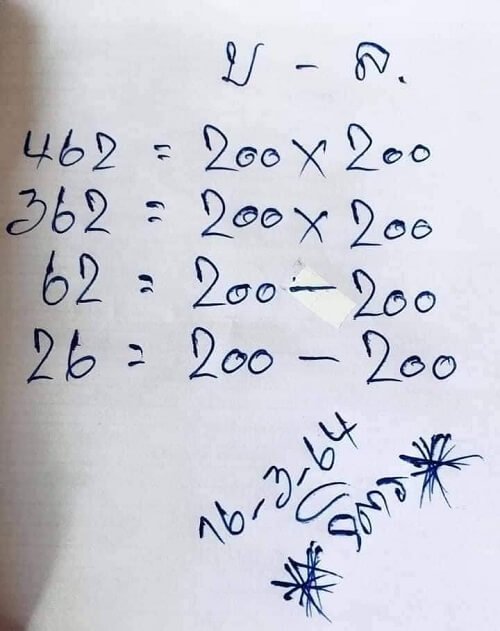 บ - ล.
462 = 200 x 200
362 = 200 x 200
62 = 200 - 200
26 = 200 - 200
16-3-64